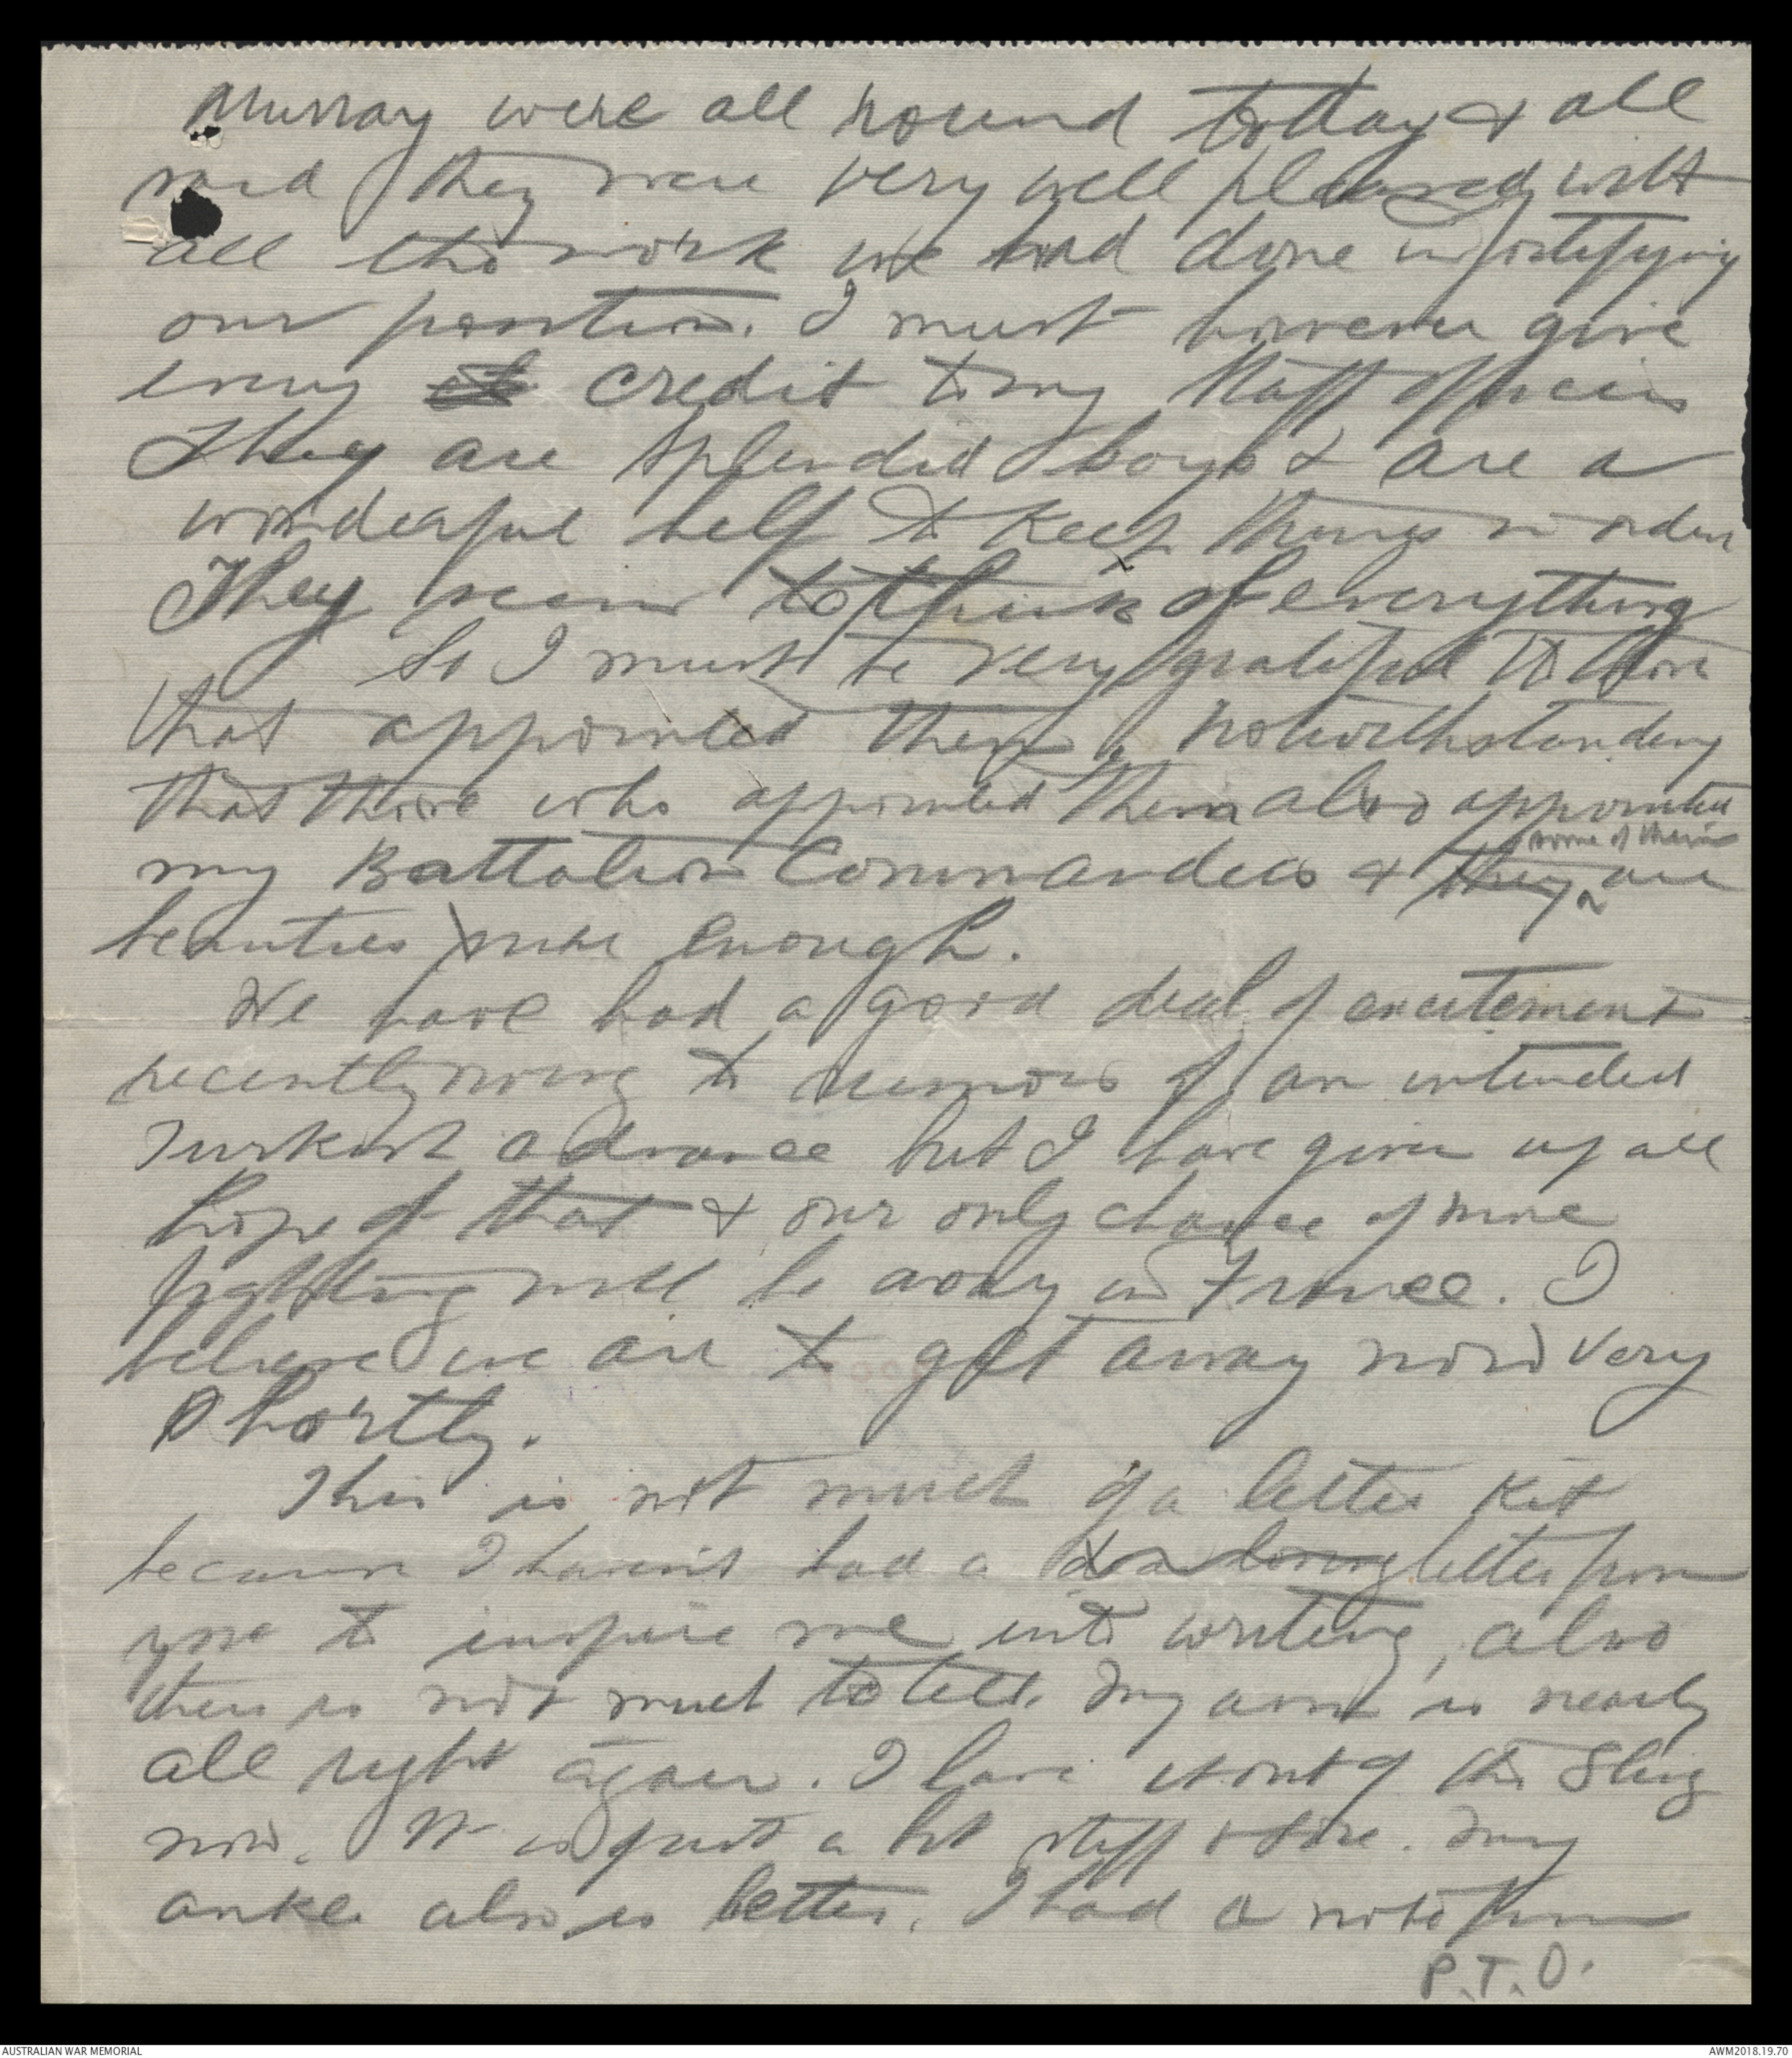 Murray were all round today & all
said they were very well pleased with
all the work we had done in fortifying
our position. I must however give
every credit to my Staff officers
They are splendid boys & are a
wonderful help to keep things in order
They seem to think of everything
So I must be very grateful to those
that appointed them, notwithstanding
that those who appointed them also appointed
some of them
my Battalion Commanders & they are
beauties sure enough.
We have had a good deal of excitement
recently owing to rumors of an intended
Turkish advance but I have given up all
hope of that & our only chance of more
fighting will be away in France. I
believe we are to get away now very
shortly.
This is not much of a letter Kit
because I havent had a letter from
you to inspire me into writing, also
there is not much to tell. My arm is nearly
all right again. I have it out of the Sling
now. It is just a bit stiff & sore. My
ankle also is better. I had a note from
P.T.O.
AUSTRALIAN WAR MEMORIAL
AWM2018.19.70